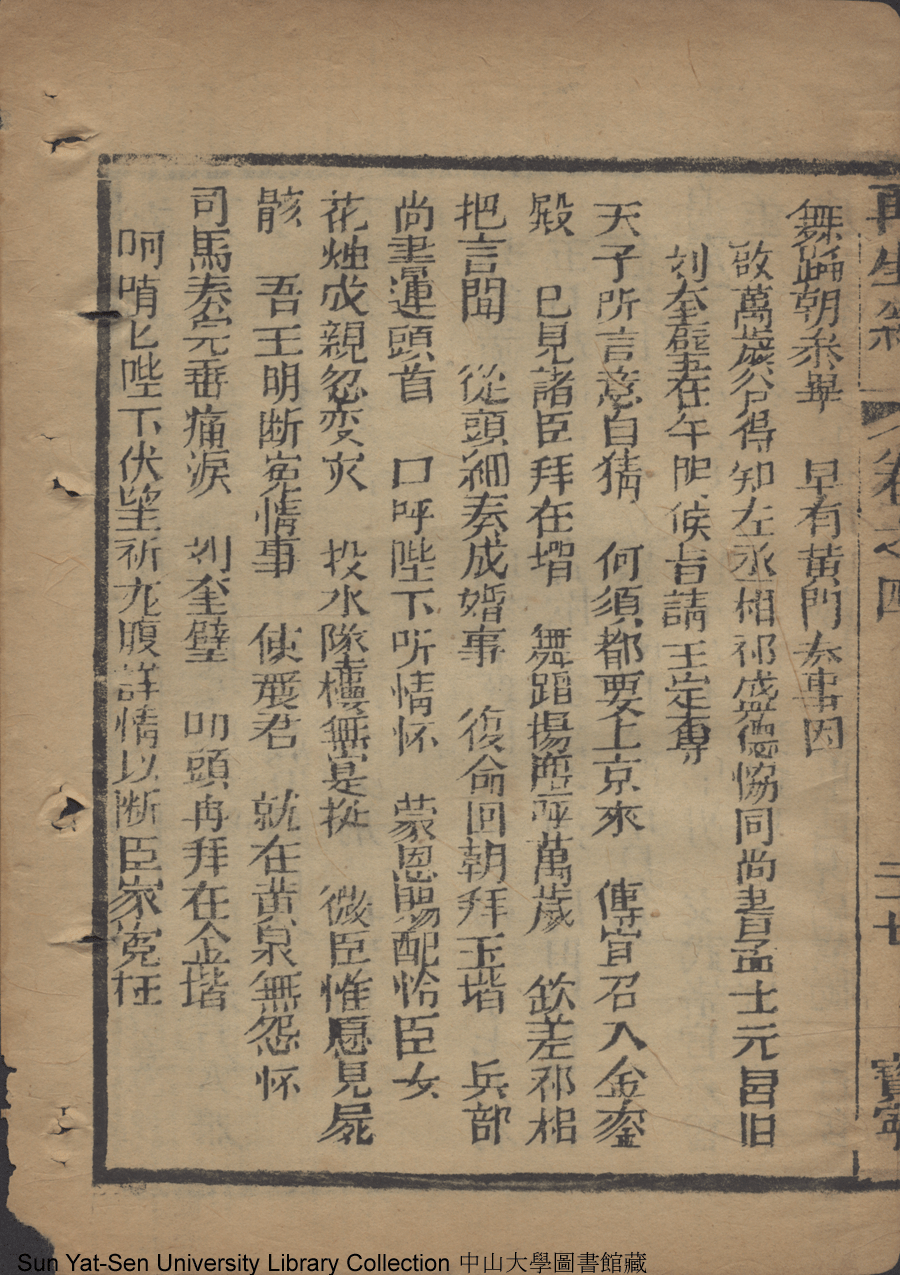 再生緣 卷之四 二十七 寶寧
舞蹈朝叅畢 早有黄門奏事因
啟萬歲爷得知左丞相祁盛德恊同尚書孟士元冒旧
刘奎璧在午門候旨請王定奪
天子所言意自猜 何須都要上京來 傳宣召入金銮
殿 巳見諸臣拜在堦 舞蹈揚塵呼萬歲 欽差祁相
把言聞 從頭細奏成婚事 復命回朝拜玉堦 兵部
尚書運頭首 口呼陛下听情怀 蒙恩賜配怜臣女
花烛成親忽变灾 投水隊樓無寔捱 微臣惟愿見屍
骸 吾王明断寃情事 使展君 就在黄泉無怨怀
司馬奏完垂痛淚 刘奎璧 叩頭再拜在金堦
呵唷匕陛下伏望祈龙腹詳情以断臣家寃枉
Sun Yat-Sen University Library Collection 中山大學圖書館藏